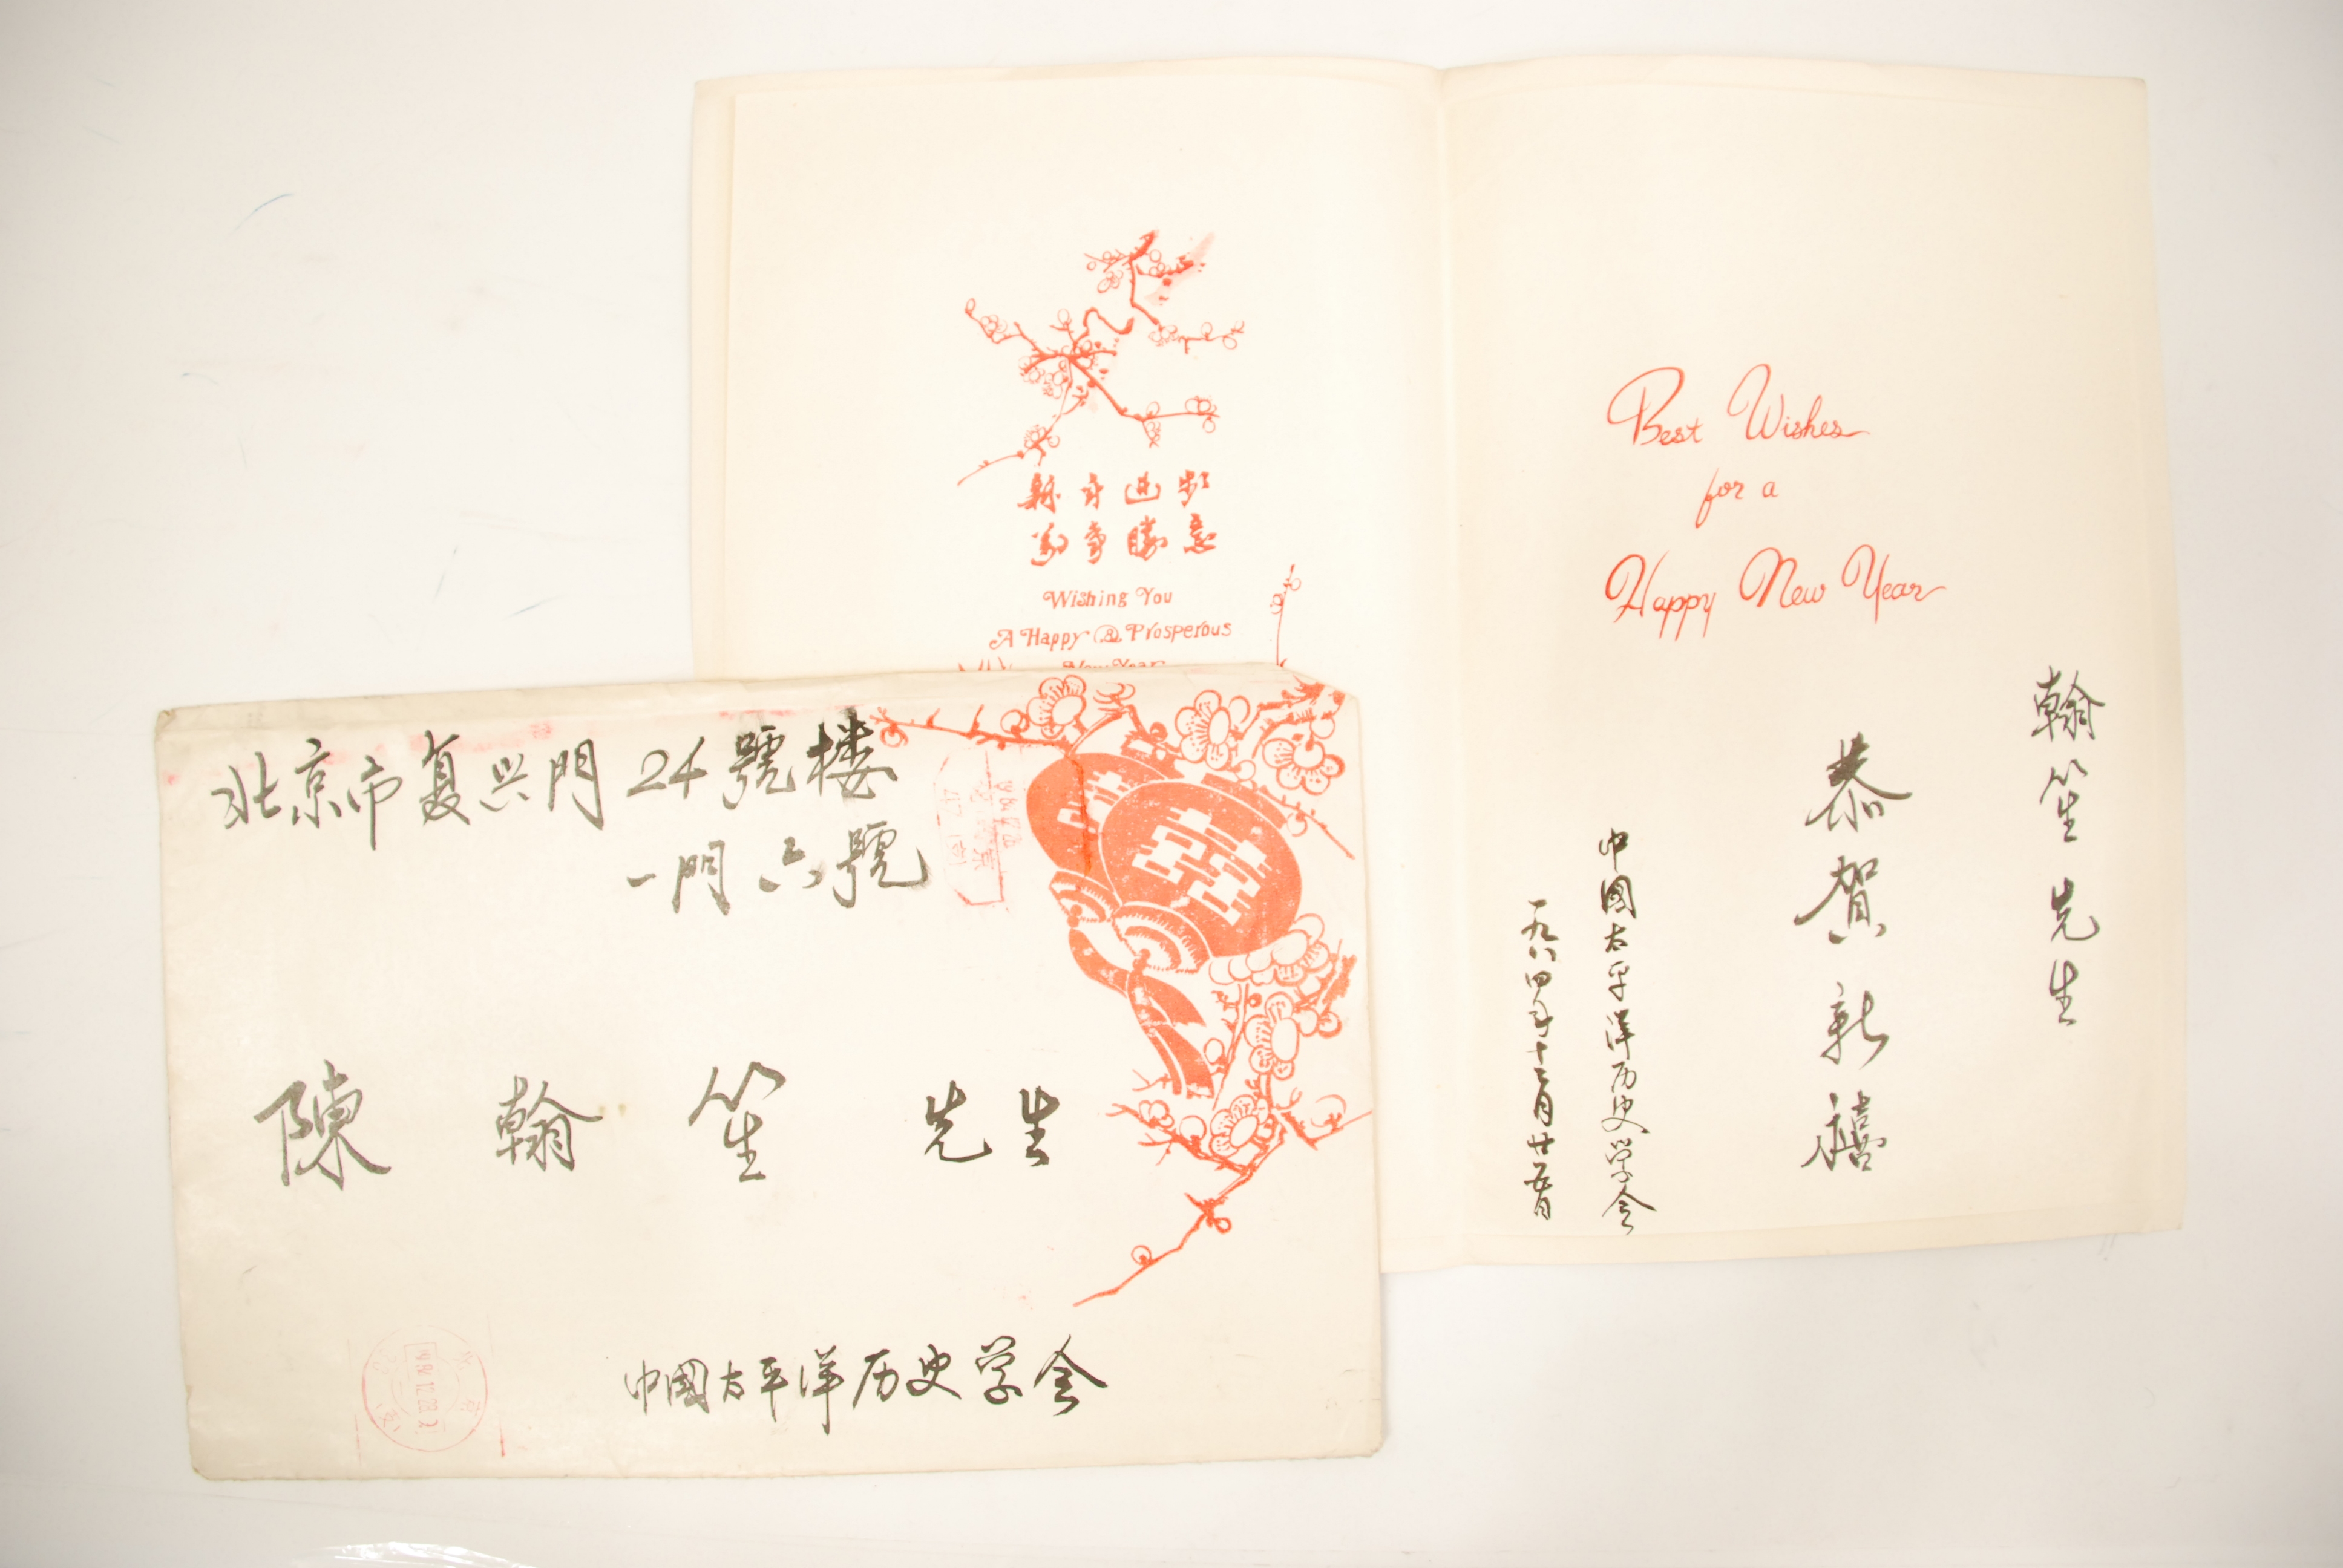 北京市复兴門24號楼
一門六號
陳翰笙先生
中國太平洋历史学会
新年進步
萬事勝意
Wishing You
A Happy & Prosperous
New Year
Best Wishes
for a
Happy New Year
翰笙先生
恭贺新禧
中國太平洋历史学会
一九八四年十二月廿五日